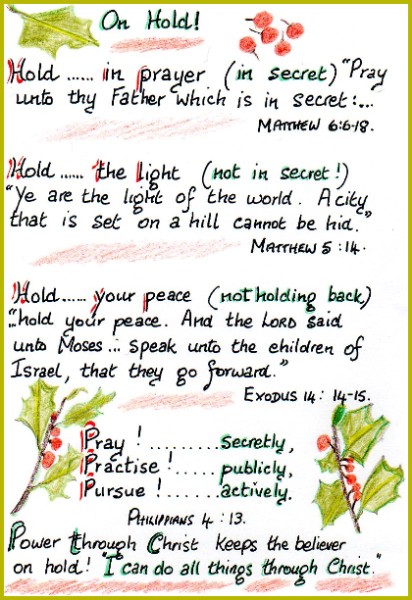 On Hold!
Hold ...... in prayer (in secret) "Pray
unto thy Father which is in secret:...
MATTHEW 6:6-18.
Hold ...... the light (not in secret!)
"Ye are the light of the world. A city
that is set on a hill cannot be hid."
MATTHEW 5:14.
Hold...... your peace (not holding back)
"...hold your peace. And the LORD said
unto Moses... speak unto the children of
Israel, that they go forward."
EXODUS 14: 14-15.
Pray !.........secretly,
Practise !......publicly,
Pursue !.......actively.
PHILIPPIANS 4 :13.
Power through Christ keeps the believer
on hold! "I can do all things through Christ."